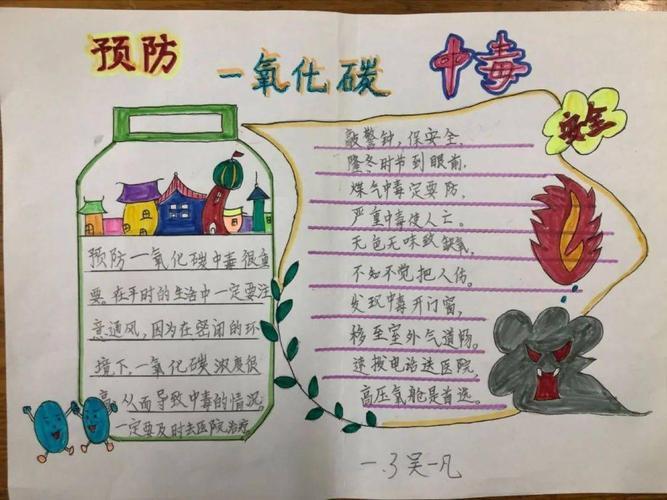 预防 一氧化碳 中毒
安全
预防一氧化碳中毒很重
要。在平时的生活中一定要注
意通风,因为在密闭的环
境下,一氧化碳浓度很
高,从而导致中毒的情况。
一定要及时去医院治疗。
敲警钟,保安全,
隆冬时节到眼前,
煤气中毒定要防,
严重中毒使人亡。
无色无味致缺氧,
不知不觉把人伤。
发现中毒开门窗,
移至室外气道畅。
速拨电话送医院
高压氧舱是首选。
一.3吴一凡